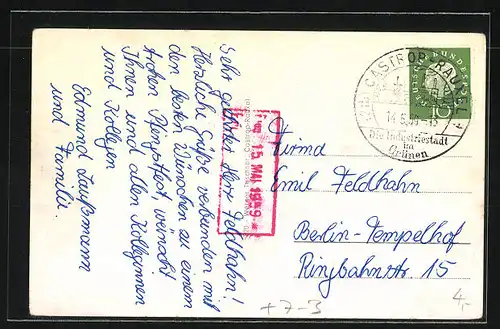 Sehr geehrter Herr Feldhahn!
Herzliche Grüße verbunden mit
den besten Wünschen zu einem
frohen Pfingstfest, wünscht
Ihnen und allen Kolleginnen
und Kollegen
Edmund Laußmann
und Familie.
CASTROP-RAUXEL
14.5.59-15
Die Industriestadt
im
Grünen
DEUTSCHE BUNDESPOST
10
15. MAI 1959
Firma
Emil Feldhahn
Berlin-Tempelhof
Ringbahnstr. 15
+7-3
4,-